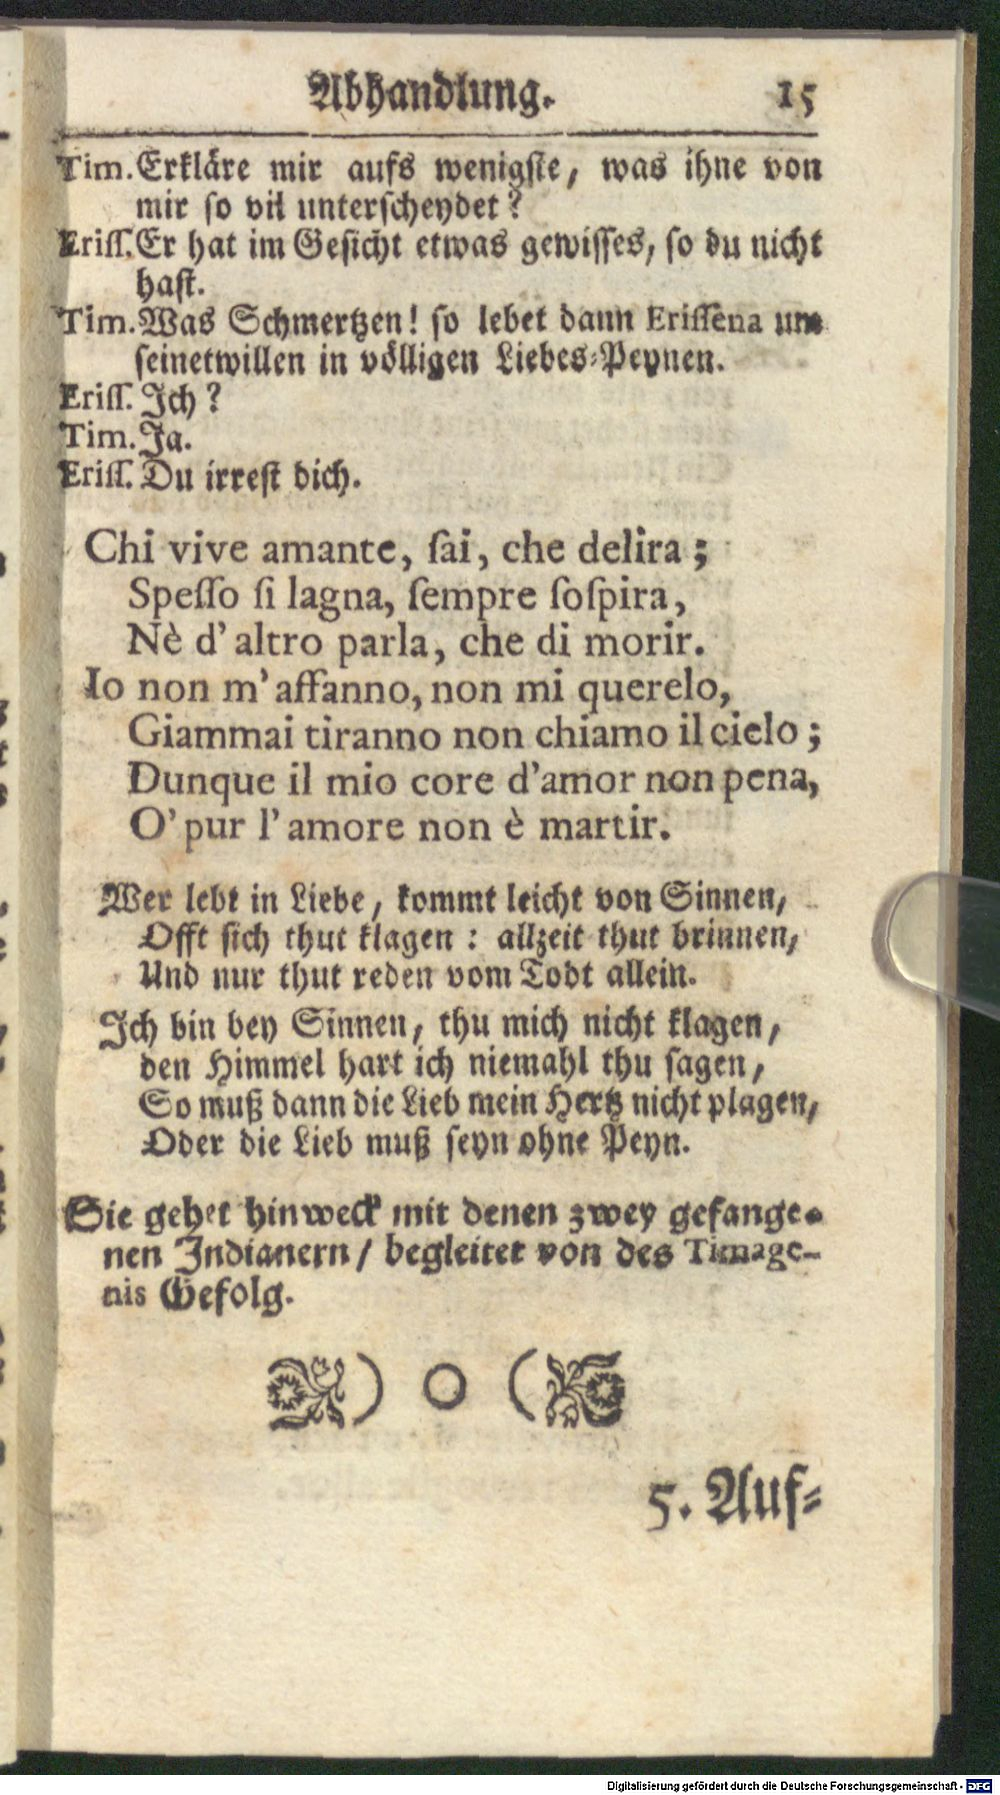 Abhandlung. 15
Tim. Erkläre mir aufs wenigste, was ihne von
mir so vil unterscheydet?
Eriſſ. Er hat im Gesicht etwas gewisses, so du nicht
hast.
Tim. Was Schmertzen! so lebet dann Eriſſena um
seinetwillen in völligen Liebes-Peynen.
Eriſſ. Ich?
Tim. Ja.
Eriſſ. Du irrest dich.
Chi vive amante, ſai, che delira;
Speſſo ſi lagna, ſempre ſoſpira,
Nè d' altro parla, che di morir.
Io non m' affanno, non mi querelo,
Giammai tiranno non chiamo il cielo;
Dunque il mio core d'amor non pena,
O' pur l' amore non è martir.
Wer lebt in Liebe, kommt leicht von Sinnen,
Offt sich thut klagen: allzeit thut brinnen,
Und nur thut reden vom Todt allein.
Ich bin bey Sinnen, thu mich nicht klagen,
den Himmel hart ich niemahl thu sagen,
So muß dann die Lieb mein Hertz nicht plagen,
Oder die Lieb muß seyn ohne Peyn.
Sie gehet hinweck mit denen zwey gefange-
nen Indianern / begleitet von des Timage-
nis Gefolg.
) O (
5. Auf-
Digitalisierung gefördert durch die Deutsche Forschungsgemeinschaft - DFG